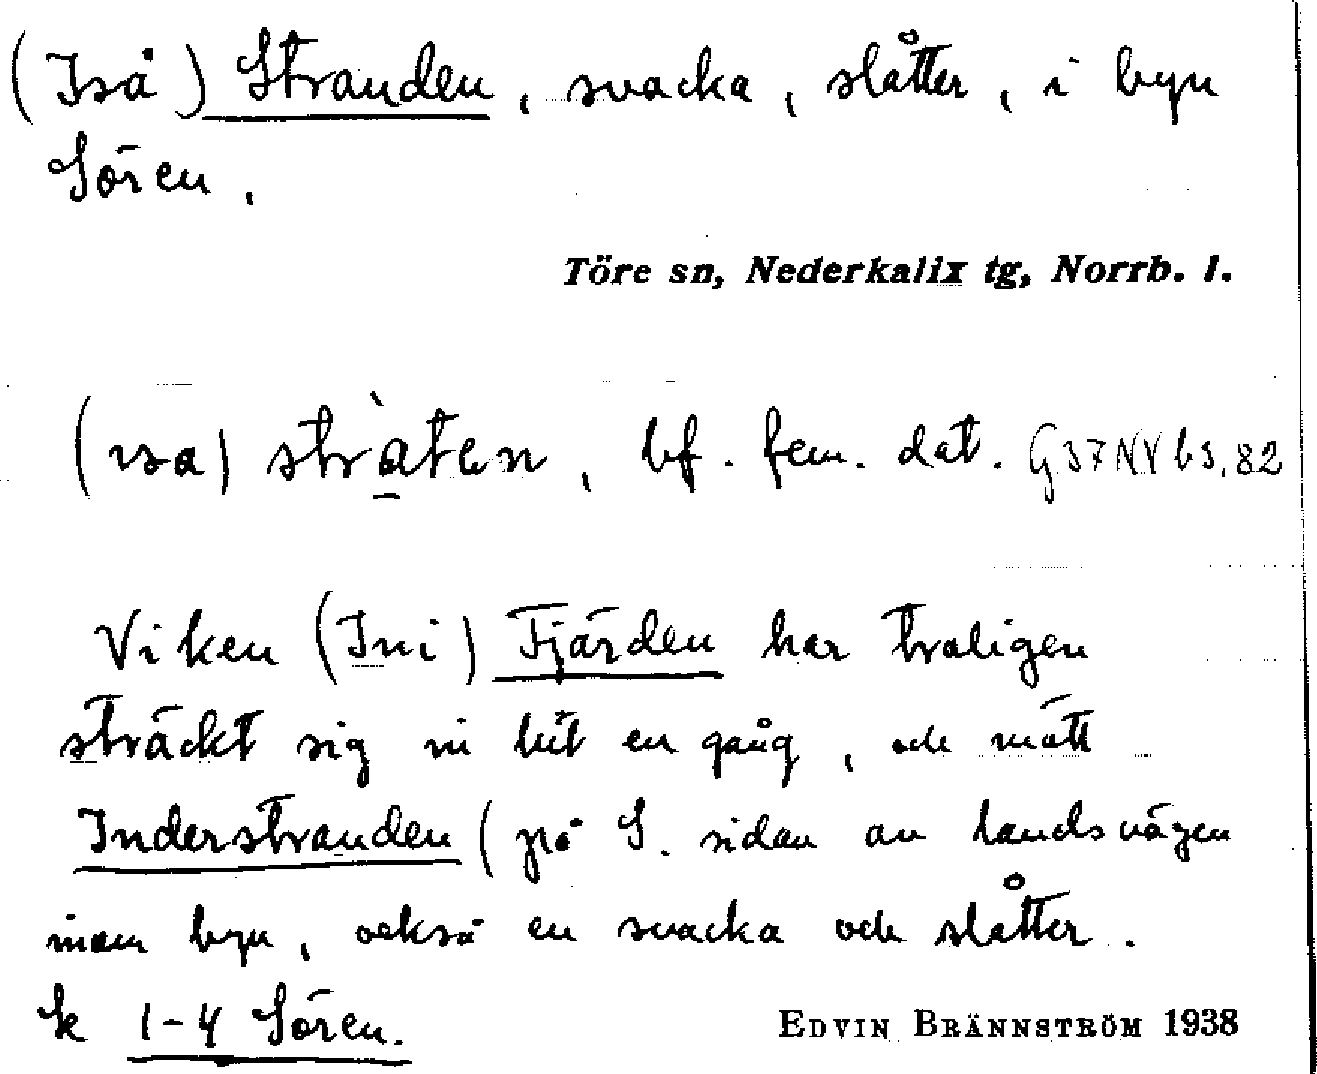 (Iså) Stranden, svacka, slåtter, i byn
Sören.
Töre sn, Nederkalix tg, Norrb. l.
bf. fem. dat.
Viken (Ini) Fjärden har troligen
sträckt sig in hit en gång, och nått
Inderstranden (på S. sidan av landsvägen
inom byn, också en svacka och slåtter.
k 1-4 Sören.
EDVIN BRÄNNSTRÖM 1938